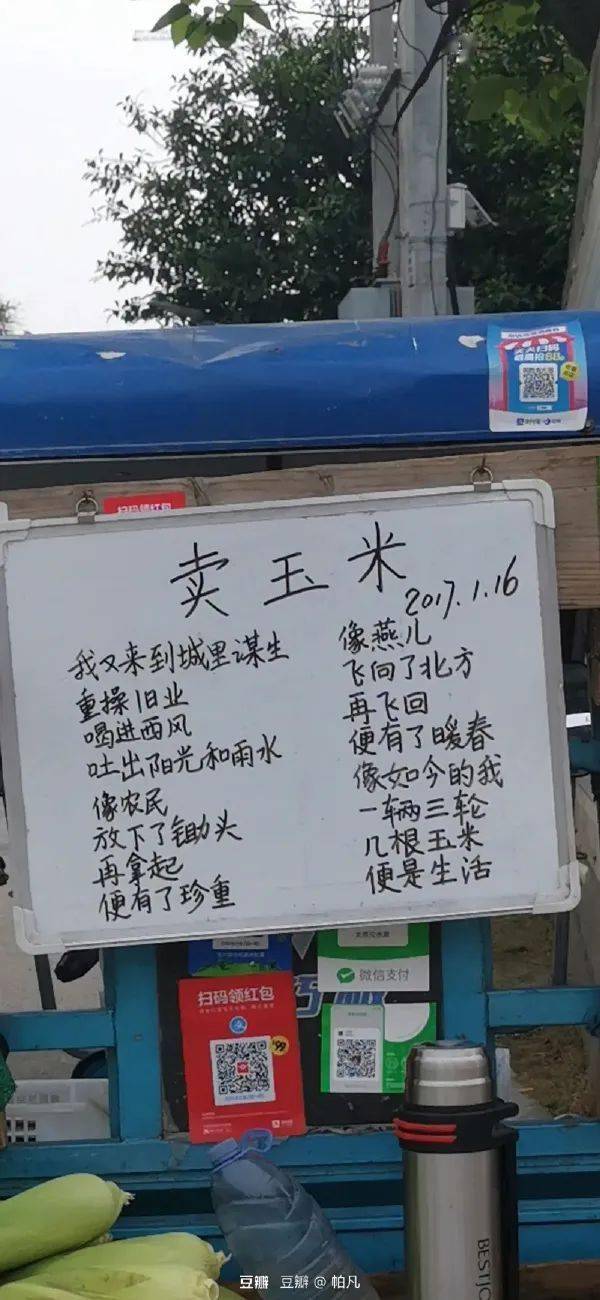 卖玉米
2017.1.16
我又来到城里谋生
重操旧业
喝进西风
吐出阳光和雨水
像农民
放下了锄头
再拿起
便有了珍重
像燕儿
飞向了北方
再飞回
便有了暖春
像如今的我
一辆三轮
几根玉米
便是生活
扫码领红包
扫码领红包
微信支付
BESTJO
豆瓣 豆瓣@帕凡